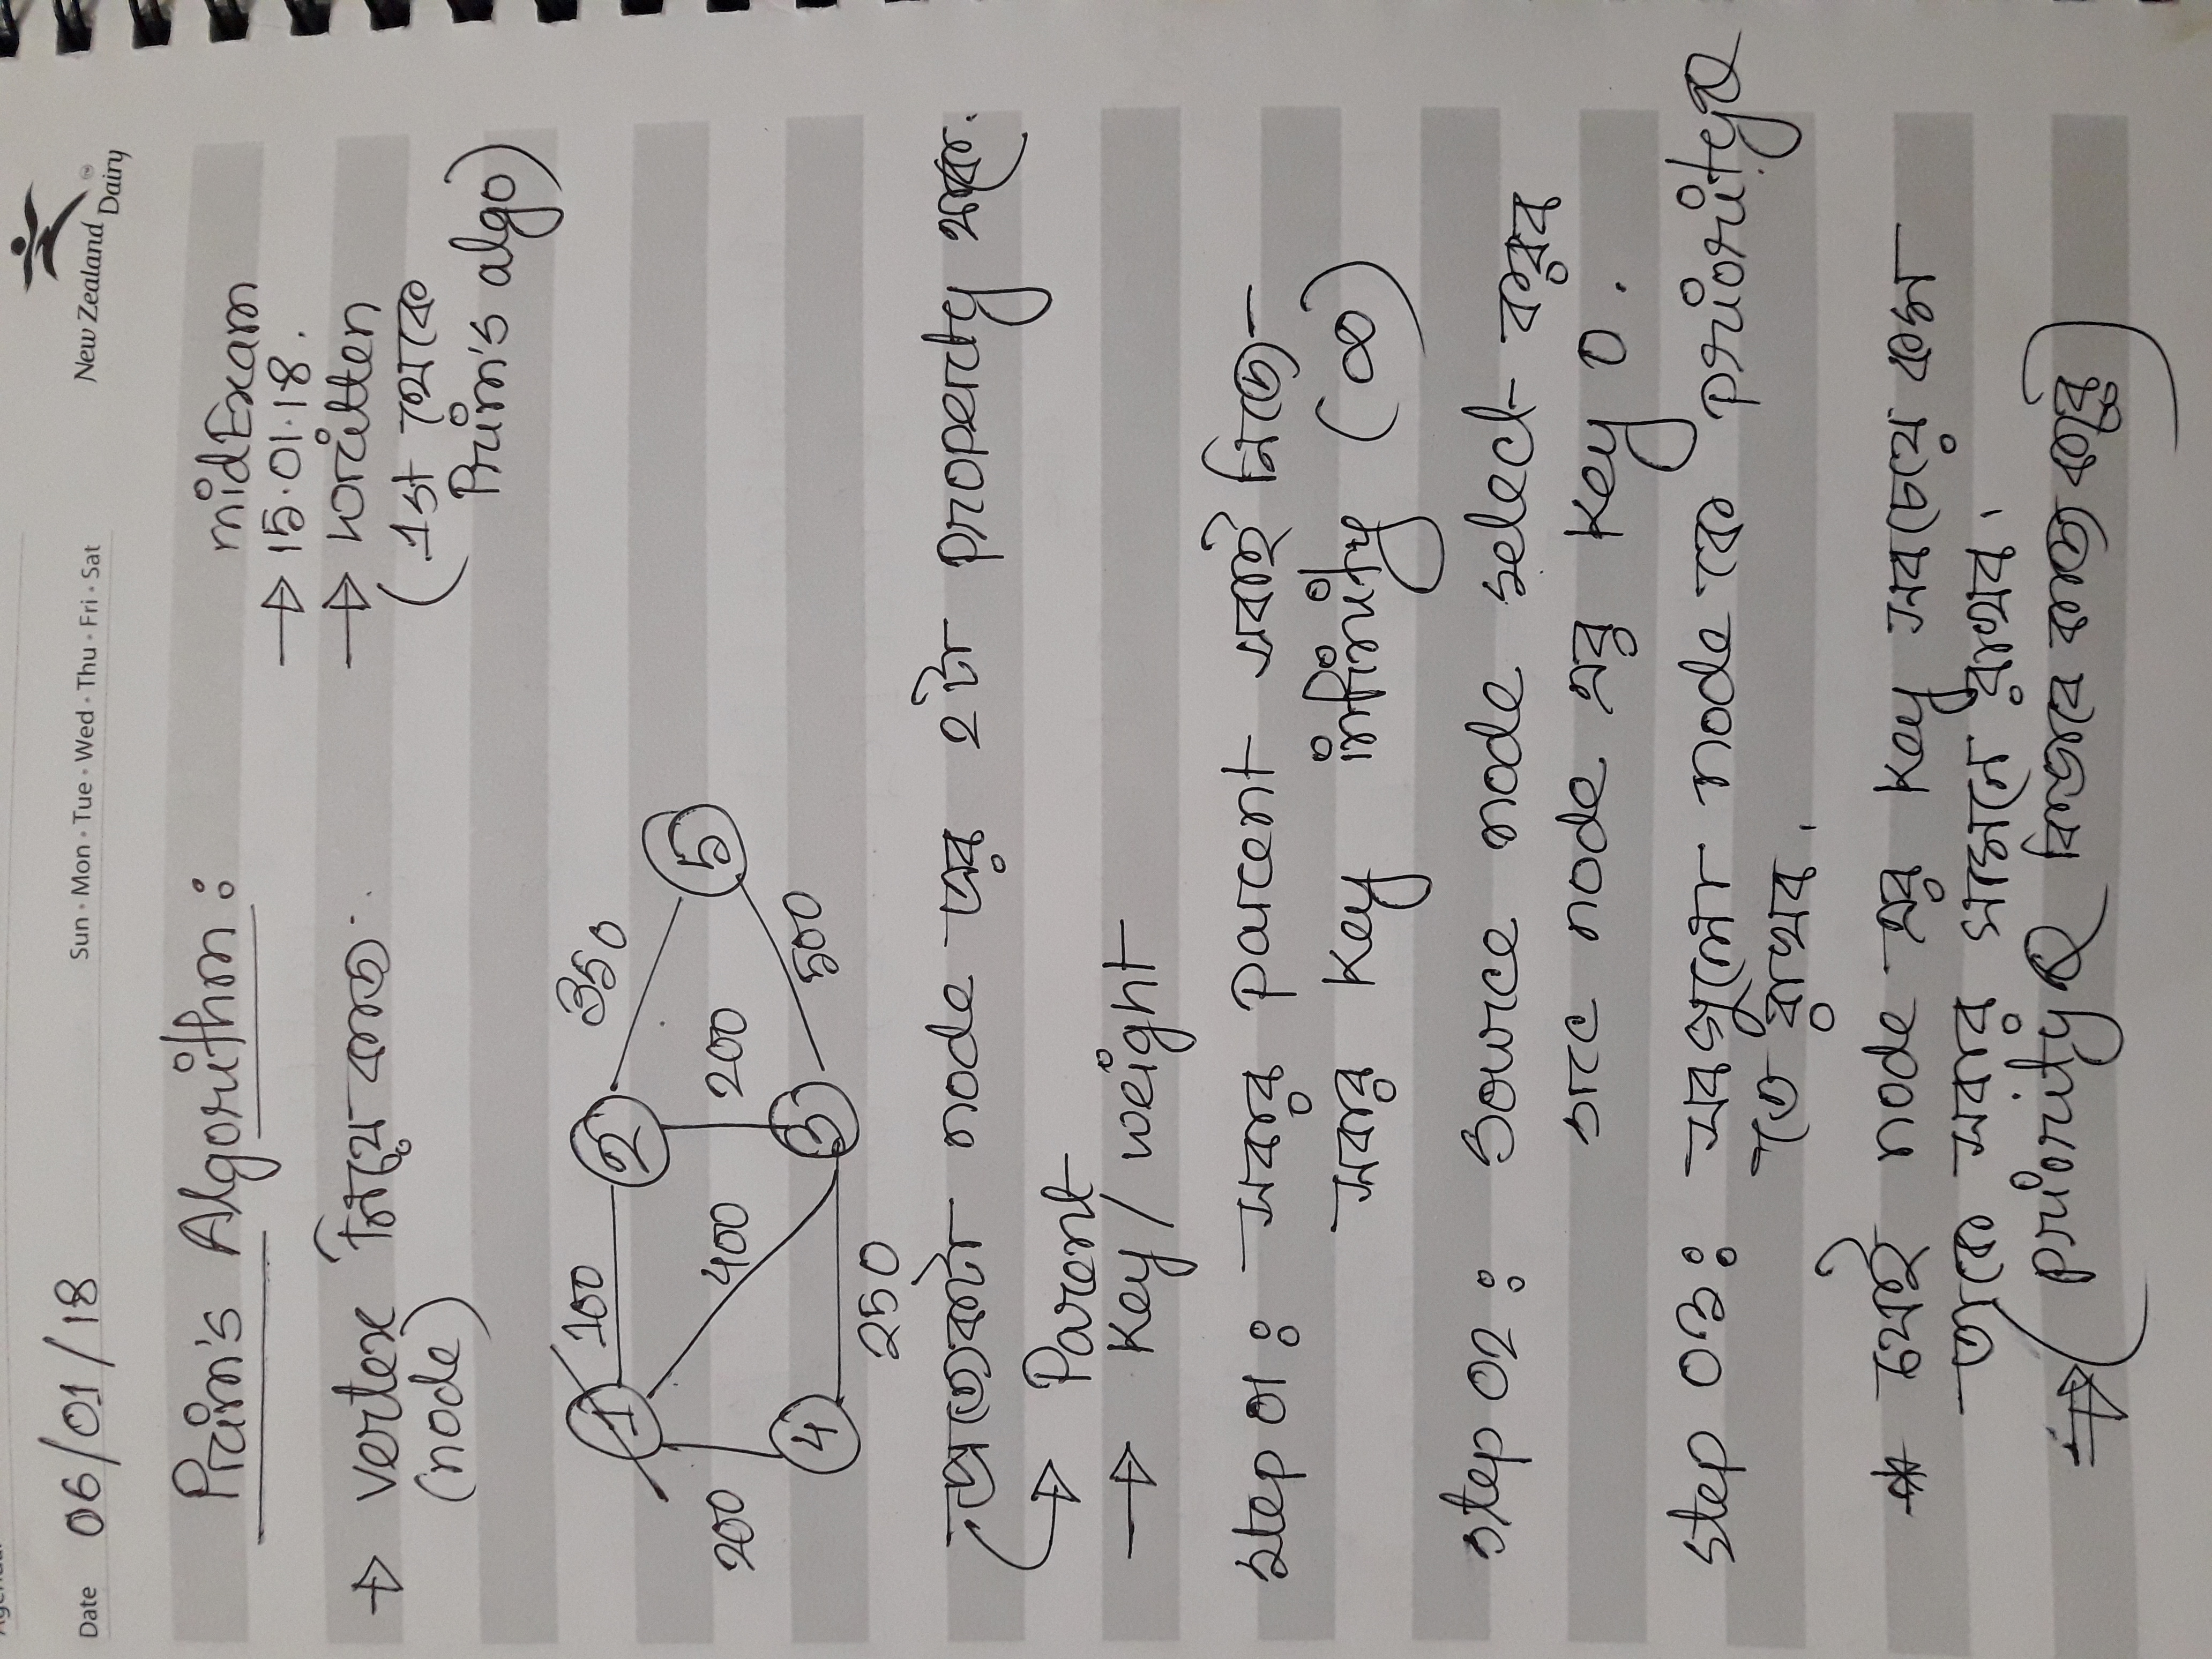 Date 06/01/18
Sun · Mon · Tue · Wed · Thu · Fri · Sat
New Zealand
Dairy
Prim's Algorithm :
midExam
→ 15.01.18.
→ written
(1st থেকে
Prim's algo)
→ vertex নিয়ে কাজ
(node)
1 100 2 350
5
200 400 200
4 3 500
250
প্রত্যেকটা node এর ২টা property থাকে.
→ Parent
→ Key / weight
step 01 : সবার parent সবাই নিজে
সবার key infinity (∞)
step 02 : source node select করব
src node এর key 0.
step 03 : সবগুলো node কে priorityQ
তে রাখব.
* যেই node এর key সবচেয়ে কম
তাকে সবার সামনে রাখব।
⇒ (priorityQ কিভাবে কাজ করে)